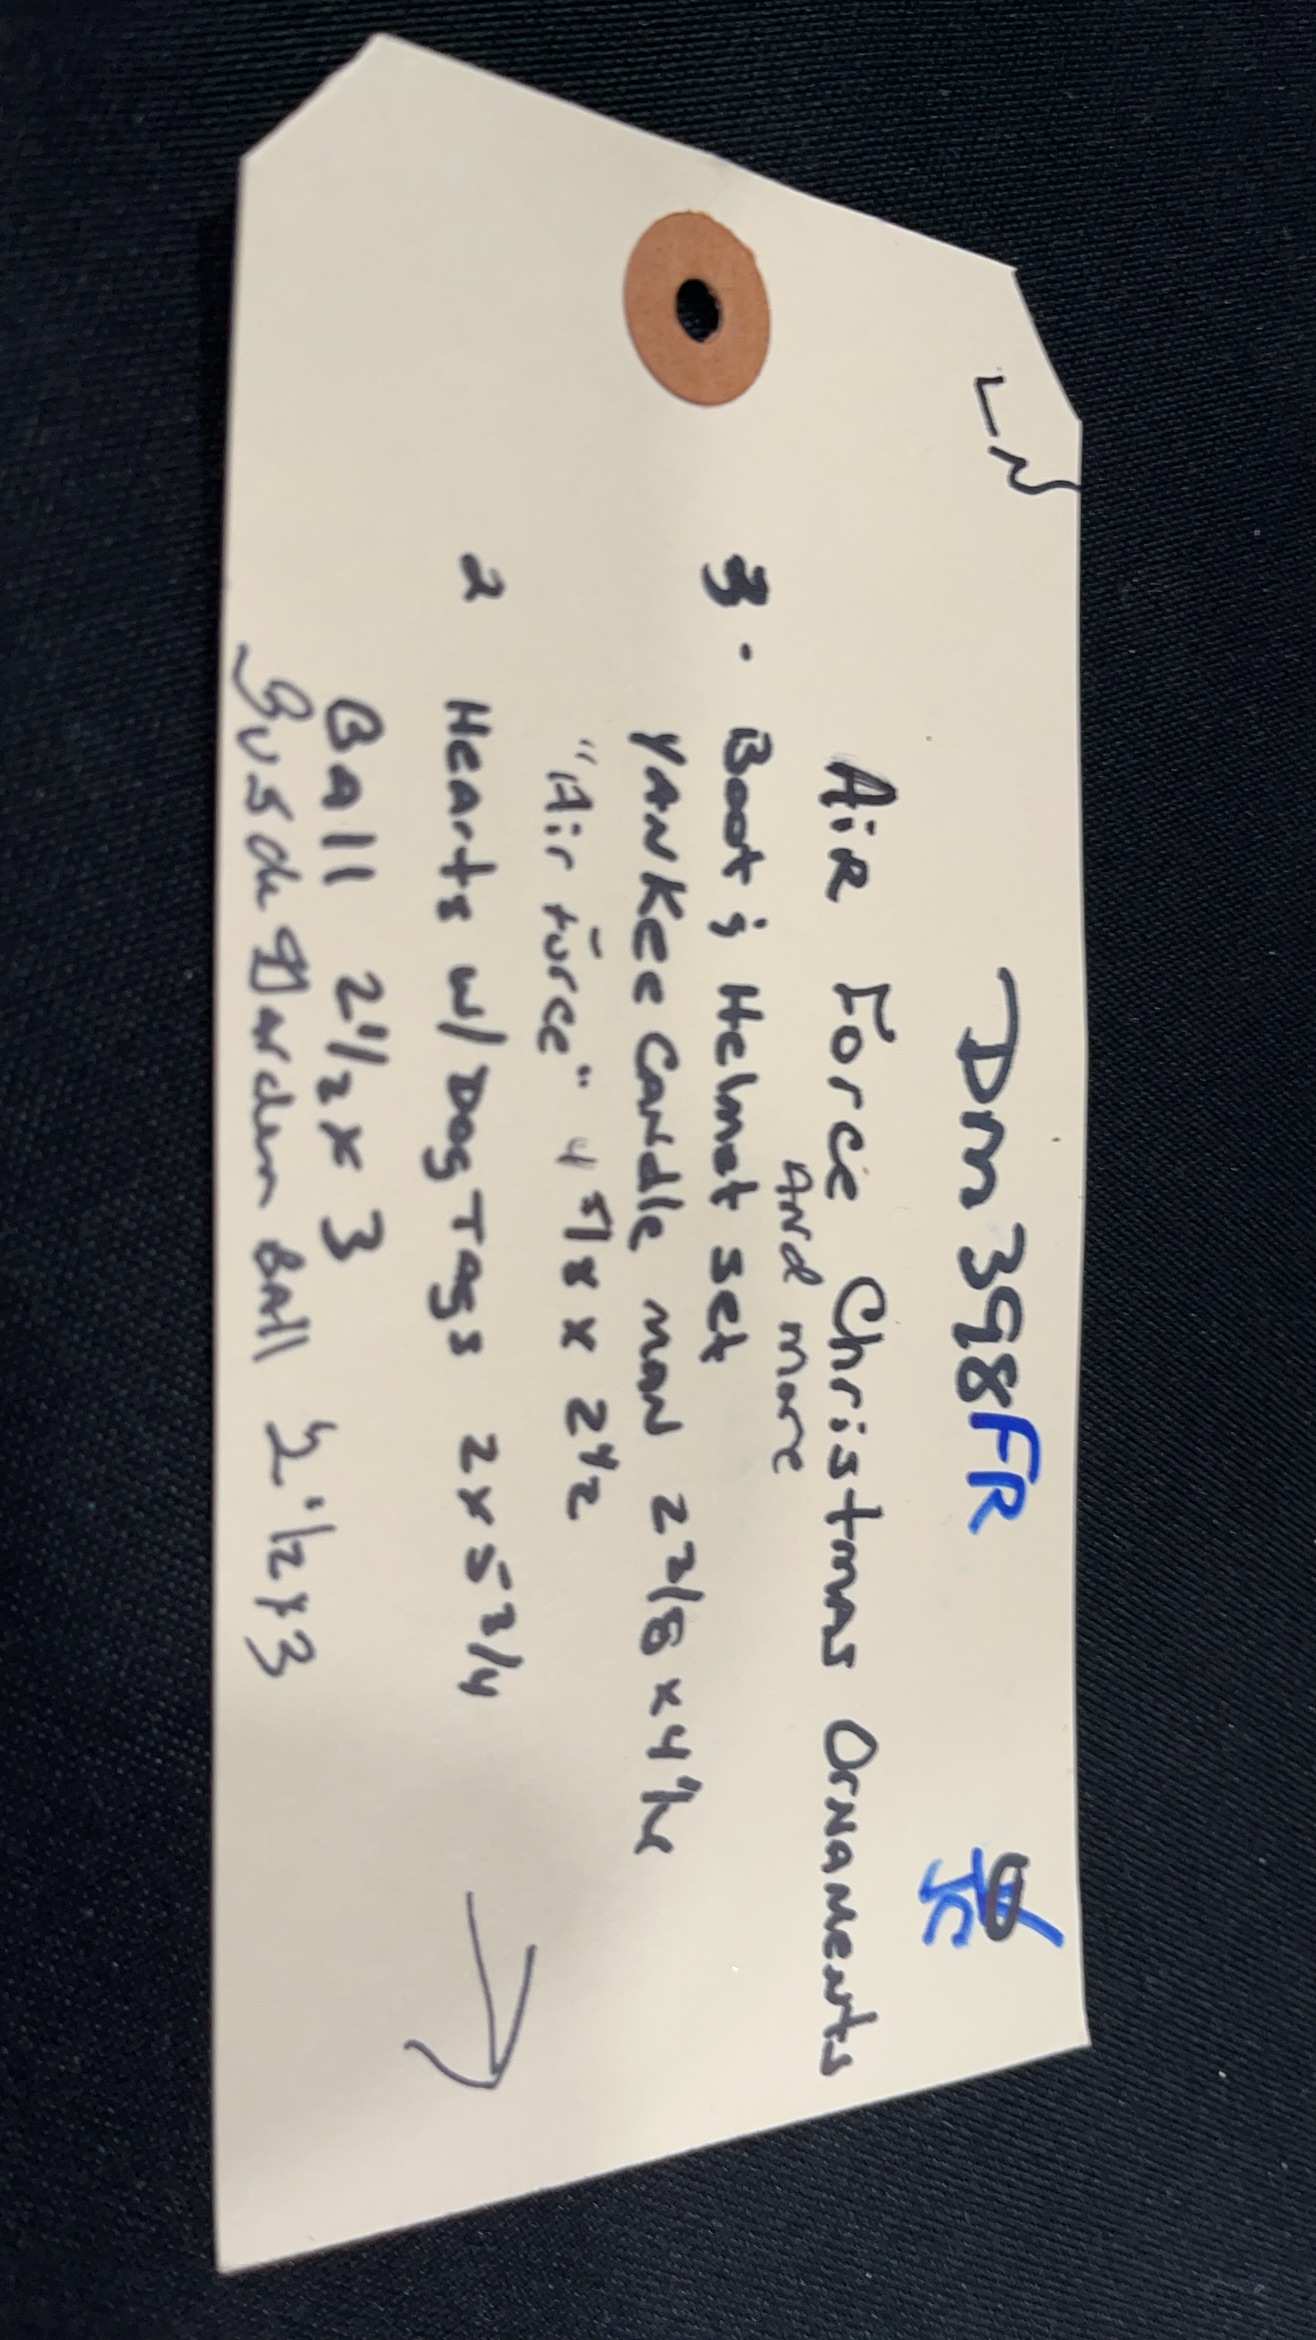 LN
Dm398FR
JC
Air Force Christmas Ornaments
And more
3 - Boot ; Helmet set
Yankee Candle man 2 7/8 x 4 1/2
"Air Force" 4 5/8 x 2 1/2
2 Hearts w/ Dog Tags 2 x 5 3/4
Ball 2 1/2 x 3
Busch Garden Ball 2 1/2 x 3